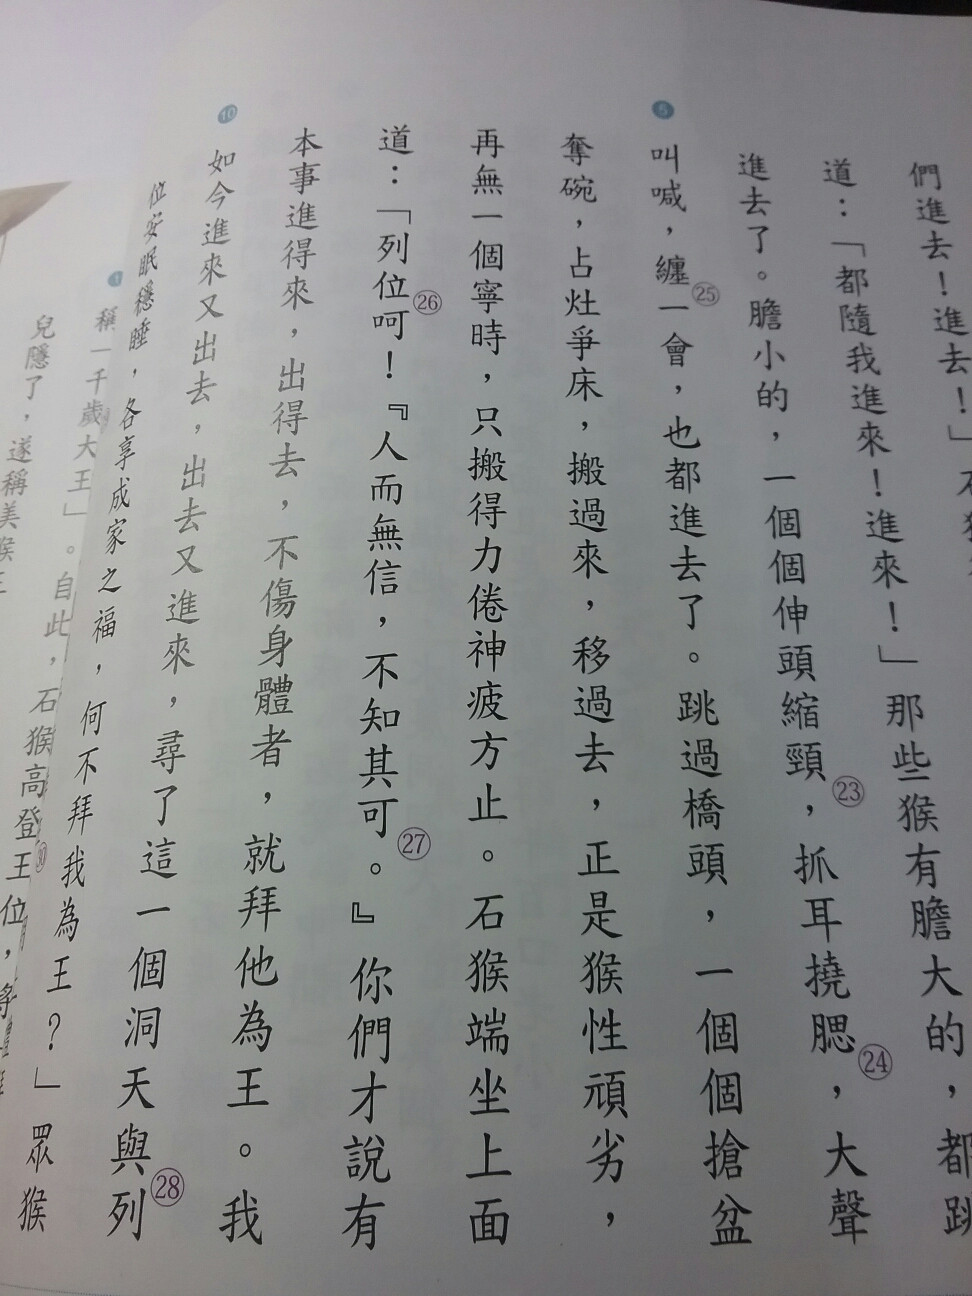 們進去！進去！」石猴
道：「都隨我進來！進來！」那些猴有膽大的，都跳
進去了。膽小的，一個個伸頭縮頸㉓，抓耳撓腮㉔，大聲
5
叫喊，纏㉕一會，也都進去了。跳過橋頭，一個個搶盆
奪碗，占灶爭床，搬過來，移過去，正是猴性頑劣，
再無一個寧時，只搬得力倦神疲方止。石猴端坐上面
道：「列位㉖呵！『人而無信，不知其可㉗。』你們才說有
本事進得來，出得去，不傷身體者，就拜他為王。我
10
如今進來又出去，出去又進來，尋了這一個洞天與㉘列
位安眠穩睡，各享成家之福，何不拜我為王？」眾猴
1
稱「千歲大王」。自此，石猴高登王位㉚，將
兒隱了，遂稱美猴王